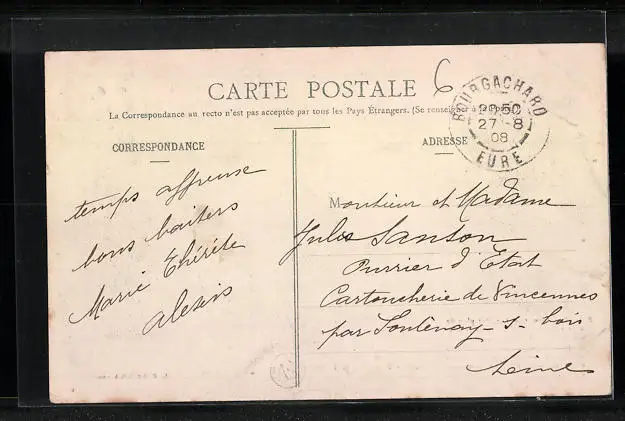 CARTE POSTALE
6
La Correspondance au recto n'est pas acceptée par tous les Pays Étrangers. (Se renseigner à la Poste)
BOURGACHARD
27-8
08
EURE
CORRESPONDANCE
ADRESSE
temps affreuse
bons baisers
Marie Thérèse
alexis
Monsieur et Madame
Jules Sanson
Ouvrier d'Etat
Cartoucherie de Vincennes
par Fontenay-s-bois
Seine